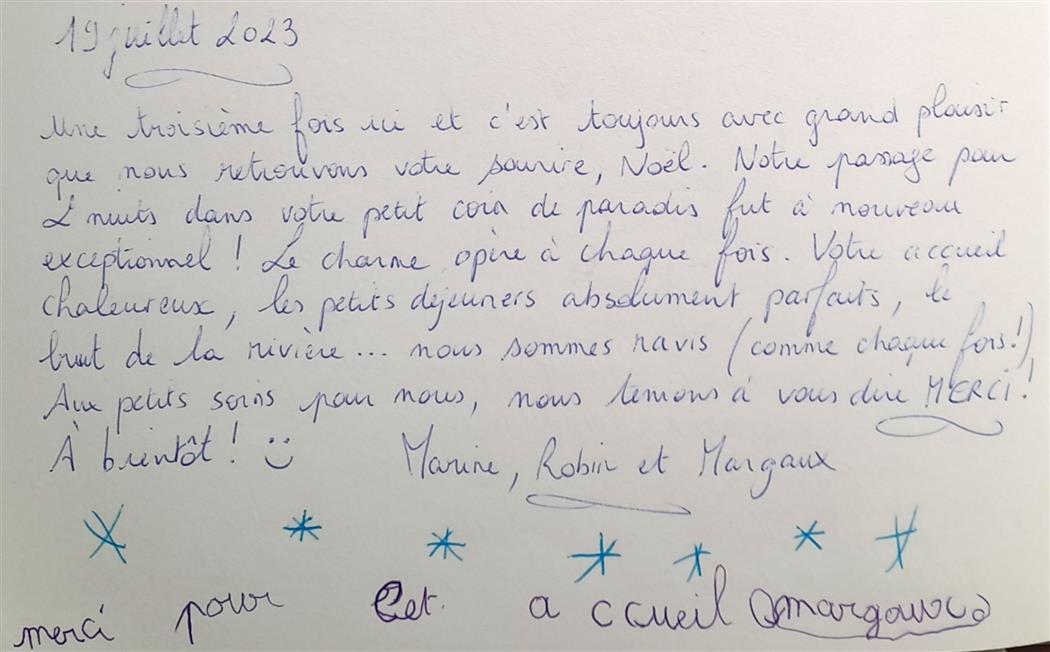 19 juillet 2023
Une troisième fois ici et c'est toujours avec grand plaisir
que nous retrouvons votre sourire, Noël. Notre passage pour
2 nuits dans votre petit coin de paradis fut à nouveau
exceptionnel ! Le charme opère à chaque fois. Votre accueil
chaleureux, les petits déjeuners absolument parfaits, le
bruit de la rivière... nous sommes ravis (comme chaque fois!)
Aux petits soins pour nous, nous tenions à vous dire MERCI!
À bientôt! :) Marine, Robin et Margaux
merci pour cet accueil margaux